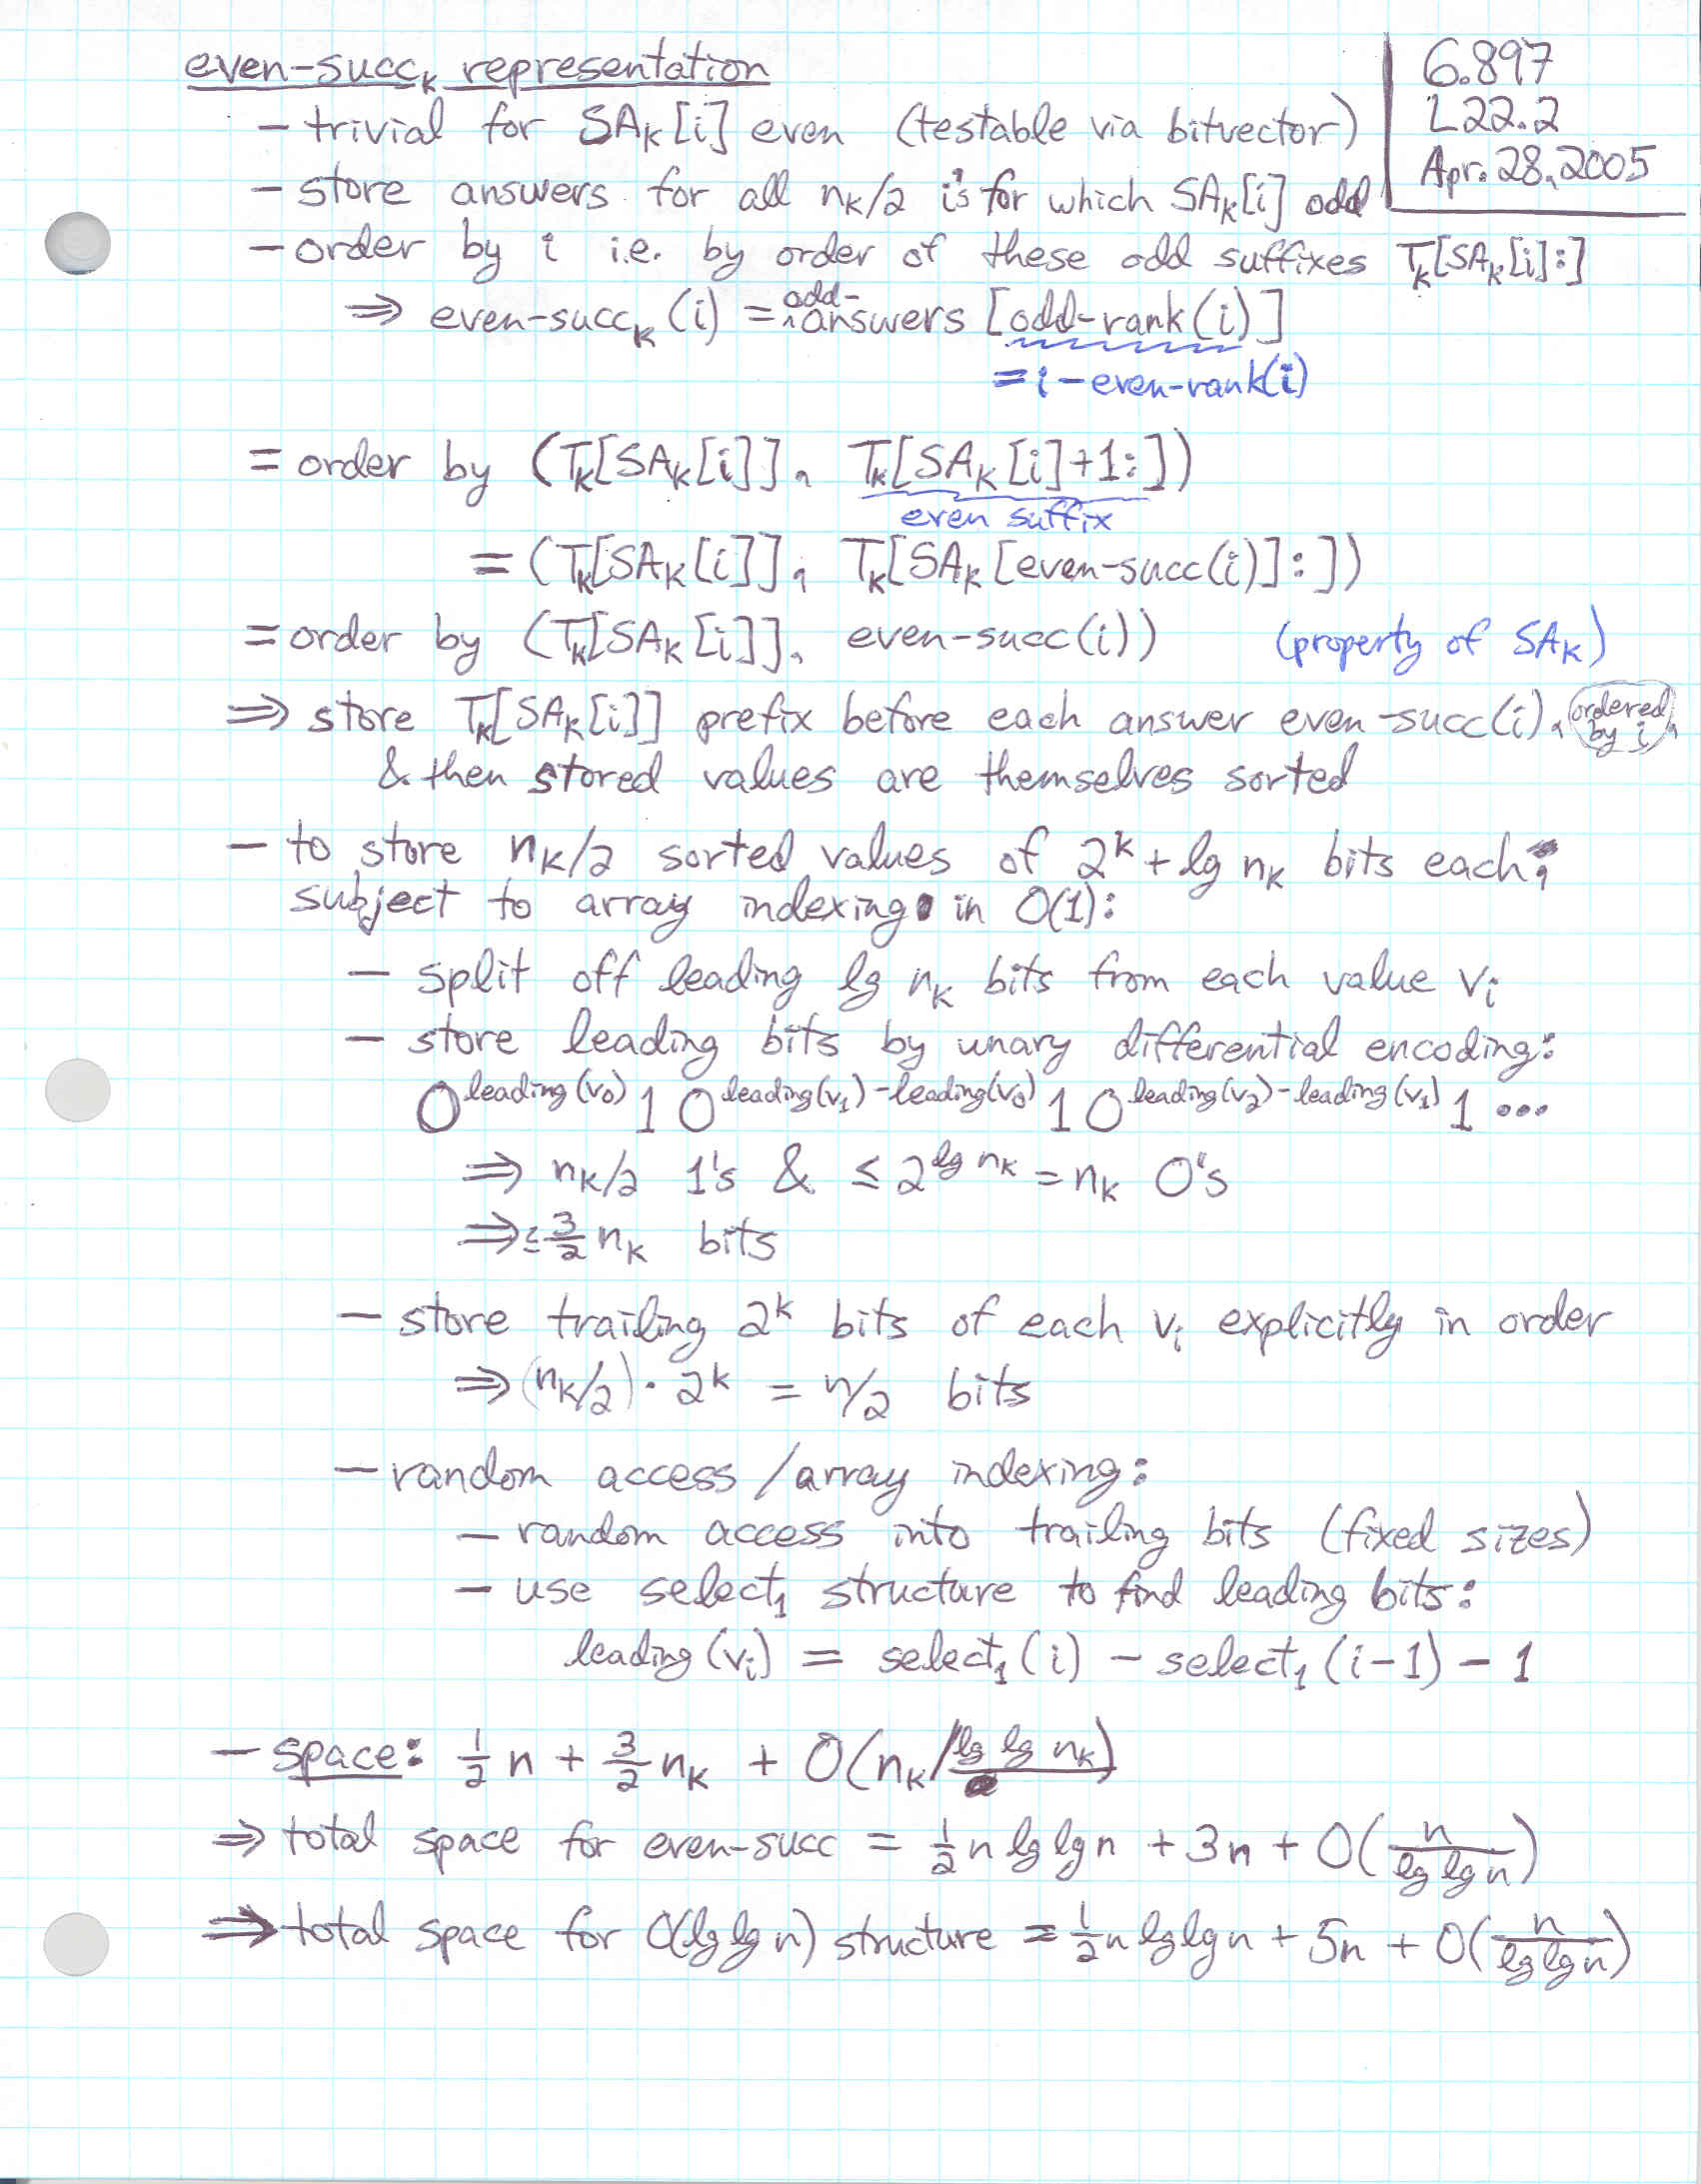 even-succₖ representation
6.897
L22.2
Apr. 28, 2005
– trivial for SAₖ[i] even (testable via bitvector)
– store answers for all nₖ/2 i's for which SAₖ[i] odd
– order by i i.e. by order of these odd suffixes Tₖ[SAₖ[i]:]
⇒ even-succₖ(i) = odd-answers [odd-rank(i)]
= i – even-rank(i)
= order by (Tₖ[SAₖ[i]], Tₖ[SAₖ[i]+1:])
even suffix
= (Tₖ[SAₖ[i]], Tₖ[SAₖ[even-succ(i)]:])
= order by (Tₖ[SAₖ[i]], even-succ(i)) (property of SAₖ)
⇒ store Tₖ[SAₖ[i]] prefix before each answer even-succ(i), ordered by i,
& then stored values are themselves sorted
– to store nₖ/2 sorted values of 2ᵏ + lg nₖ bits each,
subject to array indexing in O(1):
– split off leading lg nₖ bits from each value vᵢ
– store leading bits by unary differential encoding:
0^leading(v₀) 1 0^leading(v₁)-leading(v₀) 1 0^leading(v₂)-leading(v₁) 1 ...
⇒ nₖ/2 1's & ≤ 2^lg nₖ = nₖ 0's
⇒ ≤ 3/2 nₖ bits
– store trailing 2ᵏ bits of each vᵢ explicitly in order
⇒ (nₖ/2) · 2ᵏ = n/2 bits
– random access / array indexing:
– random access into trailing bits (fixed sizes)
– use select₁ structure to find leading bits:
leading(vᵢ) = select₁(i) – select₁(i-1) – 1
– space: 1/2 n + 3/2 nₖ + O(nₖ/lg lg nₖ)
⇒ total space for even-succ = 1/2 n lg lg n + 3n + O(n/lg lg n)
⇒ total space for O(lg lg n) structure = 1/2 n lg lg n + 5n + O(n/lg lg n)